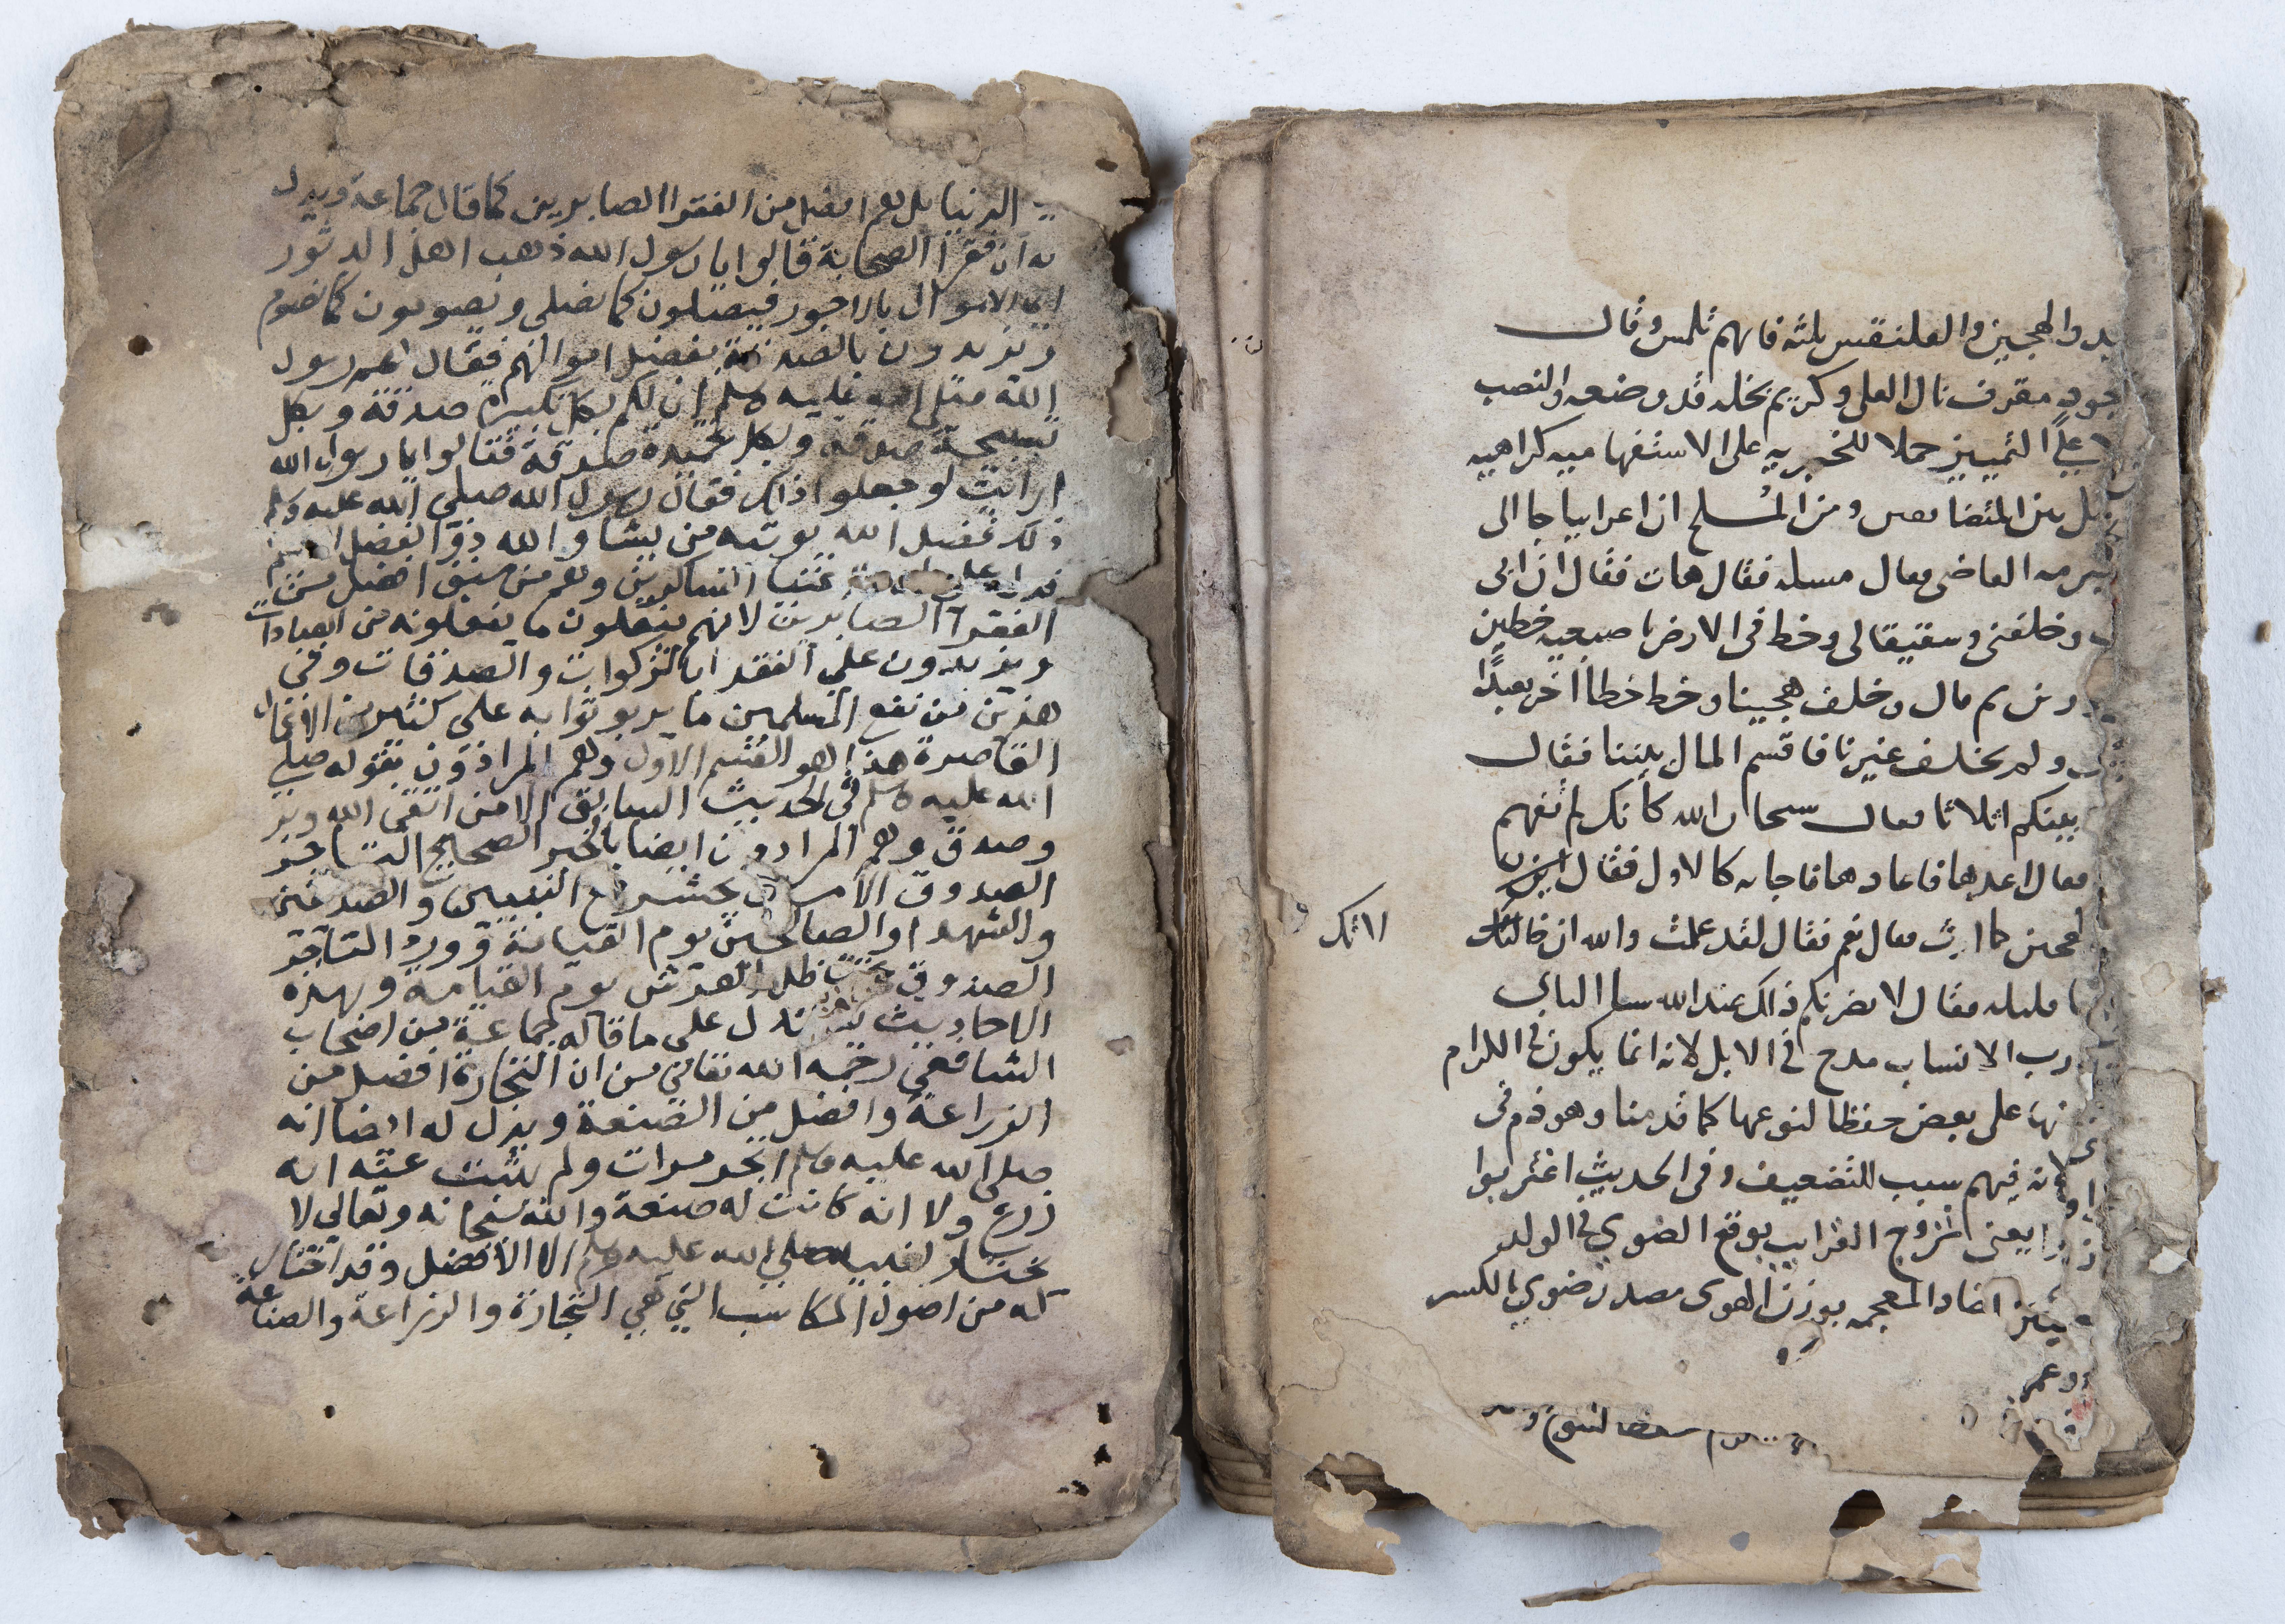 والهجين والفلنقس ثلثه فايهم تلمس وقال
مقرف نال العلى وكريم بخله قد وضعه والنصب
على التمييز حملا للخبريه على الاستفهاميه كراهيه
بين المتضايفين ومن الملح ان اعرابيا جا الى
العاضى معال مسله فقال هات فقال ان ابى
وخلفنى وسقيقا لى وخط فى الارض باصبعيه خطين
مال وخلف هجينا وخط خطا اخر بعيدا
ولم يخلف غيرنا فاقسم المال بيننا فقال
بينكم اثلاثا معال سبحان الله كانك لم تفهم
معال اعدها فاعادها فاجابه كالاول فقال ايرث
كما ارث معال نعم فقال لقد علمت والله ان خالتك
الاتك
معال لا يضرنكم ذلك عند الله سا
الانساب مدح فى الابل لانه انما يكون فى الكرام
على بعض حفظا لنوعها كما قدمنا وهو ذم فى
لانه فيهم سبب للتضعيف وفى الحديث اغتربوا
يعنى تزوج القرايب يوقع الضوى فى الولد
الضاد المعجمه بوزن الهوى مصدر ضوى بالكسر
وعمر
الدنيا بل هم افضل من الفقرا الصابرين كما قال جماعة ويدل
ان فقرا الصحابة قالوا يا رسول الله ذهب اهل الدثور
الاموال بالاجور فيصلون كما نصلى ويصومون كما نصوم
ويزيدون بالصدقة بفضل اموالهم فقال لهم رسول
الله صلى الله عليه وسلم ان لكم بكل تكبيرة صدقة وبكل
تسبيحة صدقة وبكل تحميدة صدقة فقالوا يا رسول الله
ارايت لو فعلوا ذلك فقال رسول الله صلى الله عليه وسلم
ذلك فضل الله يوتيه من يشا والله ذو الفضل
الشاكرين وهم من سبق افضل من
الفقرا الصابرين لانهم يفعلون ما يفعلونه من العبادات
ويزيدون على الفقرا بالزكوات والصدقات وفى
هذين من نفع المسلمين ما يربو ثوابه على كثير من الاعمال
القاصرة هذا هو القسم الاول وهم المرادون بقوله صلى
الله عليه وسلم فى الحديث السابق الا من اتقى الله وبر
وصدق وهم المرادون ايضا بالخبر الصحيح التاجر
الصدوق الامين يحشر مع النبيين والصديقين
والشهدا والصالحين يوم القيامة وورد التاجر
الصدوق تحت ظل العرش يوم القيامة وبهذه
الاحاديث تدل على ما قاله جماعة من اصحاب
الشافعى رحمه الله تعالى من ان التجارة افضل من
الزراعة وافضل من الصنعة ويدل له ايضا انه
صلى الله عليه وسلم اتجر مرات ولم يثبت عنه انه
زرع ولا انه كانت له صنعة والله سبحانه وتعالى لا
يختار لنبيه صلى الله عليه وسلم الا الافضل وقد اختار
له من اصول المكاسب التي هي التجارة والزراعة والصناعة